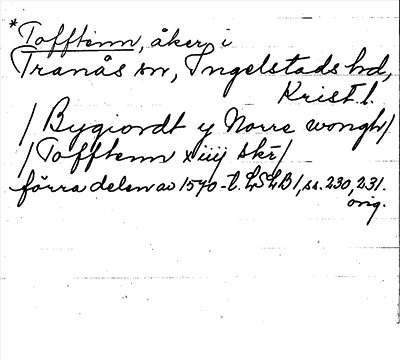 *Tofftenn, åker i
Tranås sn, Ingelstads hd,
Krist. l.
/Bygiordt y Norre wongh/
/Tofftenn xiiij skr/
förra delen av 1570-t. LSLB1, ss. 230, 231.
orig.